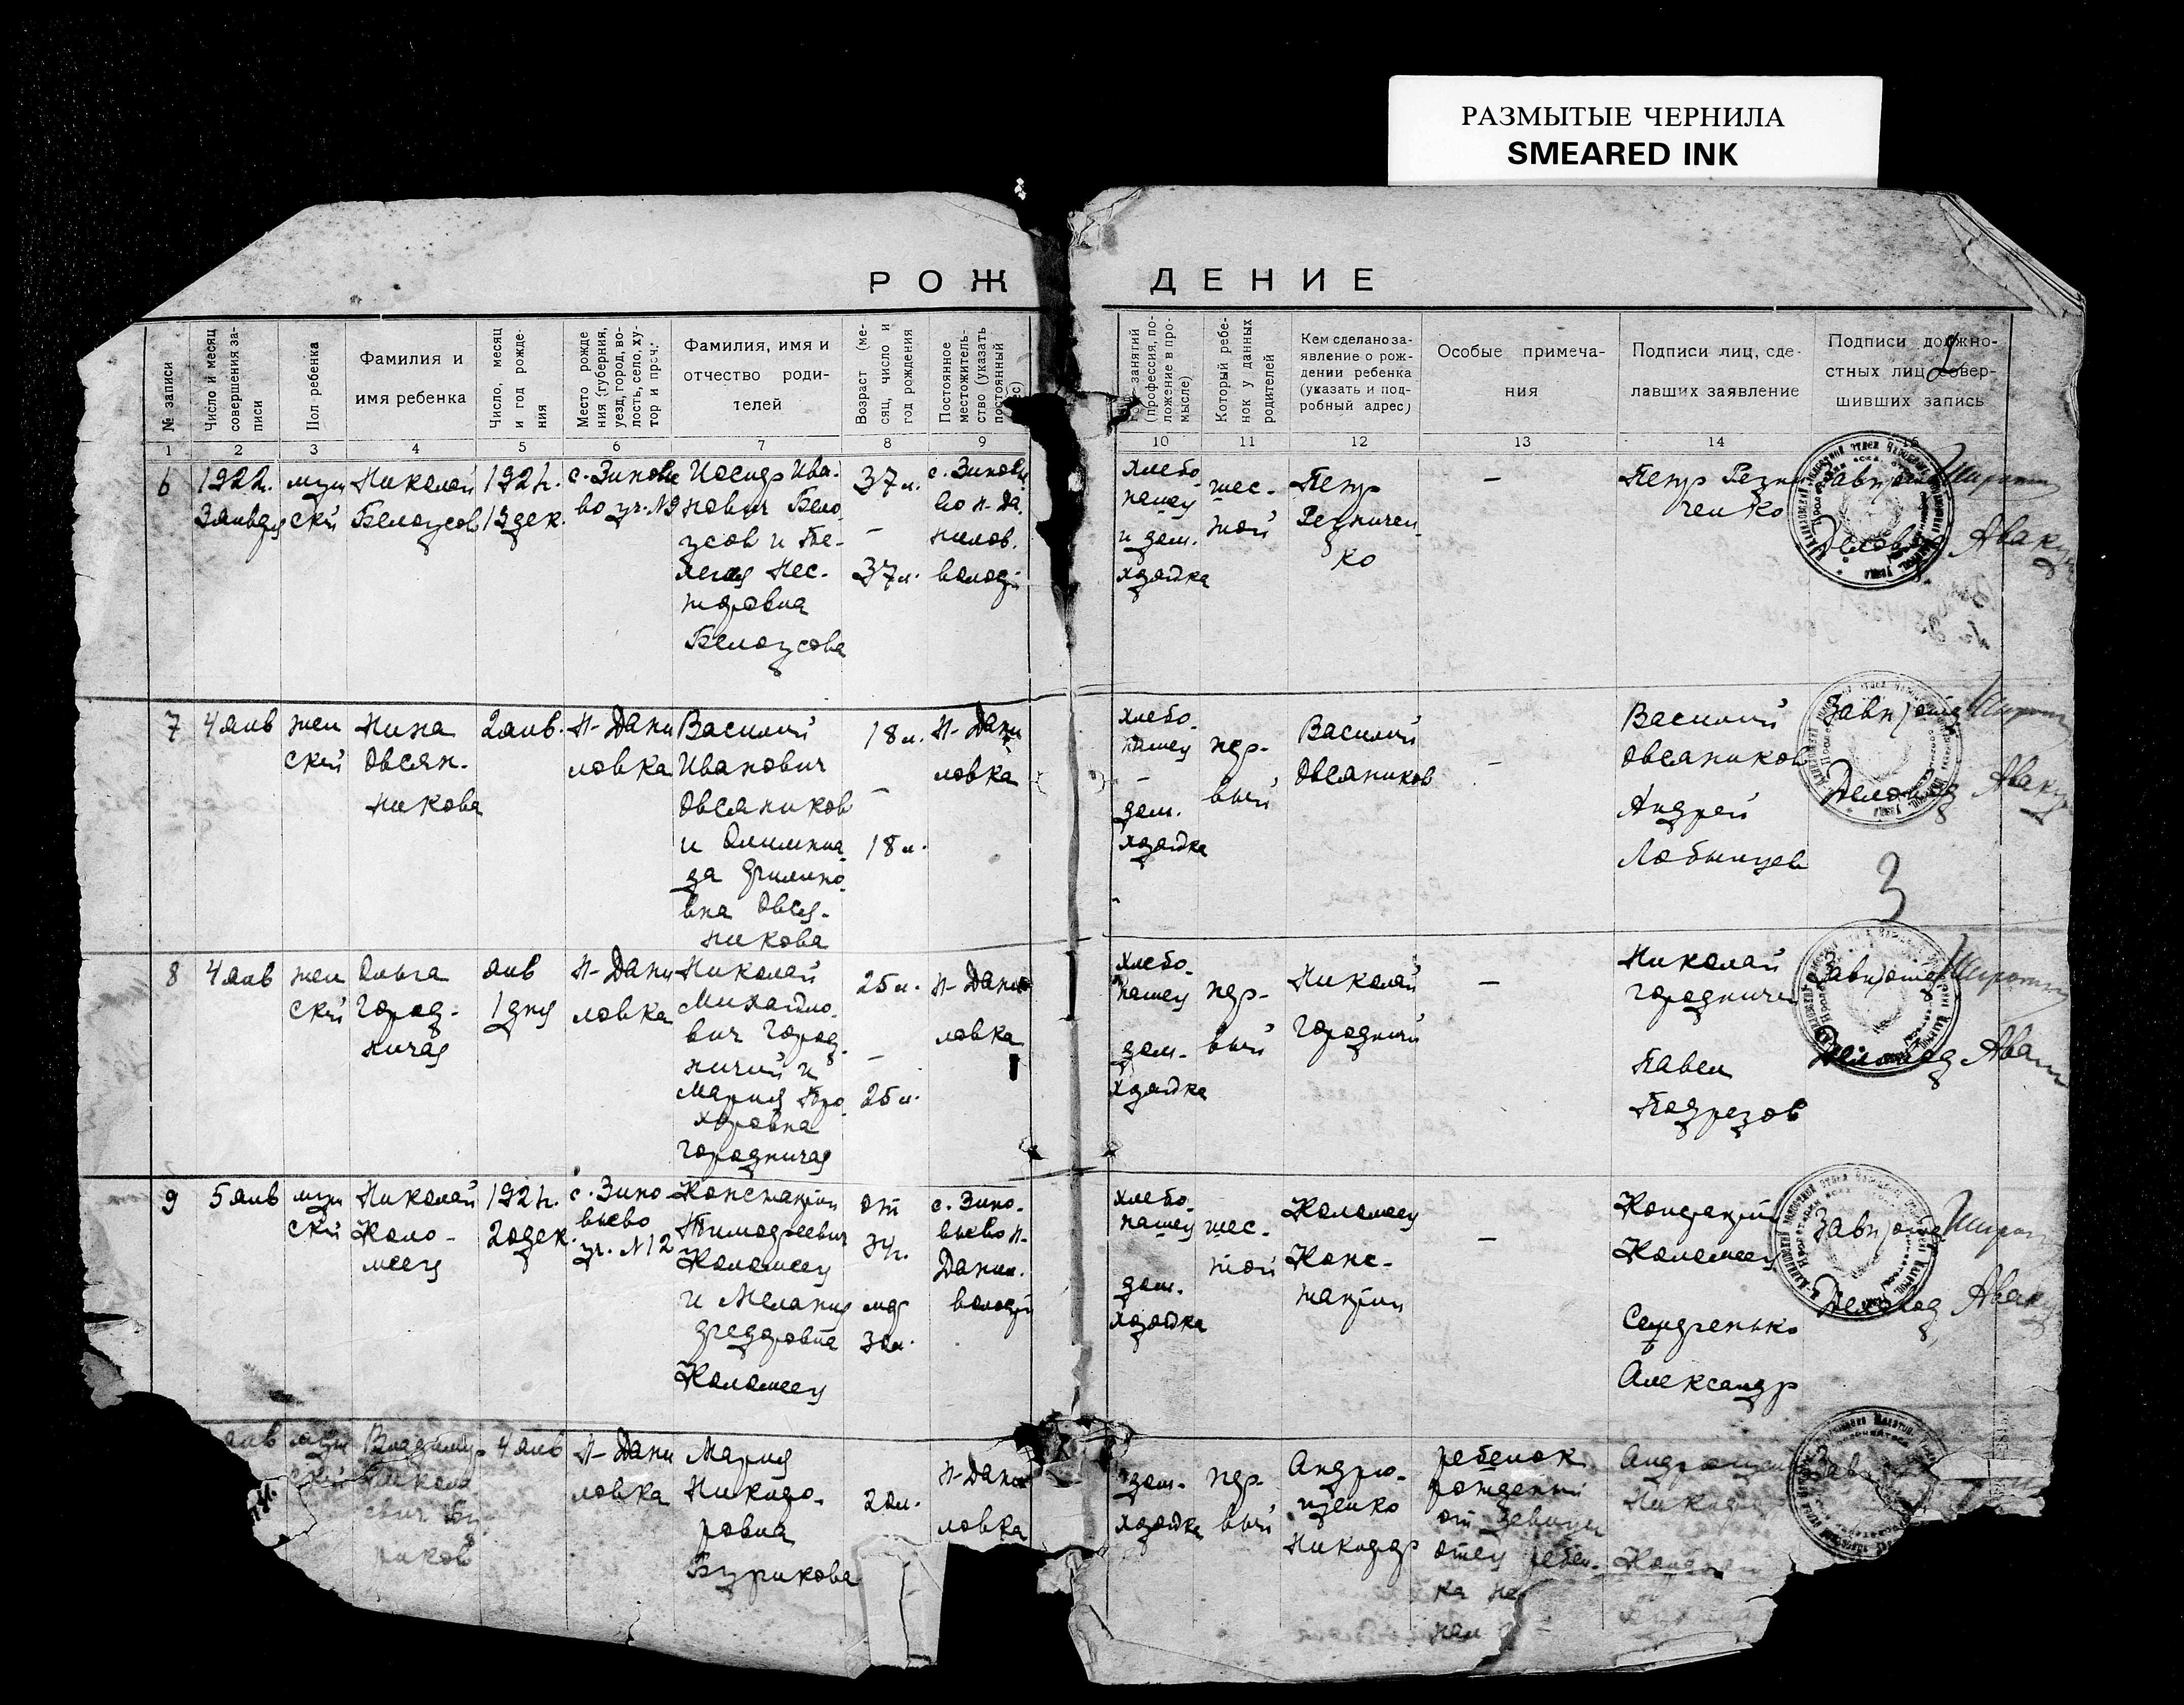 РАЗМЫТЫЕ ЧЕРНИЛА
SMEARED INK
РОЖДЕНИЕ
№ записи
Число и месяц
совершения за-
писи
Пол ребенка
Фамилия и
имя ребенка
Число, месяц
и год рожде-
ния
Место рожде
ния (губерния,
уезд, город, во-
лость, село, ху-
тор и проч.
Фамилия, имя и
отчество роди-
телей
Возраст (ме-
сяц, число и
год рождения
Постоянное
местожитель-
ство (указать
постоянный
занятий
(профессия, по-
ложение в про-
мысле)
Который ребе-
нок у данных
родителей
Кем сделано за-
явление о рож-
дении ребенка
(указать и под-
робный адрес)
Особые примеча-
ния
Подписи лиц, сде-
лавших заявление
Подписи должно-
стных лиц, совер-
шивших запись
1 2 3 4 5 6 7 8 9 10 11 12 13 14 15
6
1922г.
3 января
муж
ский
Николай
Белоусов
192 г.
13 дек.
с. Зиновье
во уч. №9
Иосиф Ива-
нович Бело
усов и Пе-
лагия Нес-
теровна
Белоусова
37 л.
–
37 л.
с. Зиновье
во Н-Да
нилов.
волости
хлебо
пашец
и дом.
хозяйка
шес-
той
Петр
Резничен
ко
–
Петр Резни
ченко
Завподотд
Деловод
7
4 янв
жен
ский
Нина
Овсян-
никова
2 янв.
Н-Дани
ловка
Василий
Иванович
Овсяников
и Олимпиа
да Филипо
вна Овся-
никова
18 л.
–
18 л.
Н-Дани
ловка
хлебо
пашец
–
дом.
хозяйка
пер-
вый
Василий
Овсяников
–
Василий
Овсяников
Андрей
Лобынцев
Завподотд
Деловод
3
8
4 янв
жен
ский
Ольга
Город-
ничая
янв
1 дня
Н-Дани
ловка
Николай
Михайло
вич Город
ничий и
Мария Про
хоровна
Городничая
25 л.
–
25 л.
Н-Дани
ловка
хлебо
пашец
дом.
хозяйка
пер-
вый
Николай
Городничий
–
Николай
Городничий
Павел
Подрезов
Завподотд
Деловод
9
5 янв
муж
ский
Николай
Коло-
меец
192 г.
20 дек.
с. Зино
вьево
уч. №12
Константин
Тимофеевич
Коломеец
и Мелания
Федоровна
Коломеец
от
34 г.
мат
30 л.
с. Зино-
вьево Н-
Данил.
волости
хлебо
пашец
дом.
хозяйка
шес-
той
Коломеец
Конс-
тантин
–
Константин
Коломеец
Александр
Завподотд
Деловод
янв
муж
ский
Владимир
Николае
вич
4 янв
Н-Дани
ловка
Мария
Никифо-
ровна
Бурикова
20 л.
Н-Дани
ловка
дом.
хозяйка
пер-
вый
Андрю-
щенко
Никифор
ребенок
рожденный
от девицы
отец ребен-
ка не